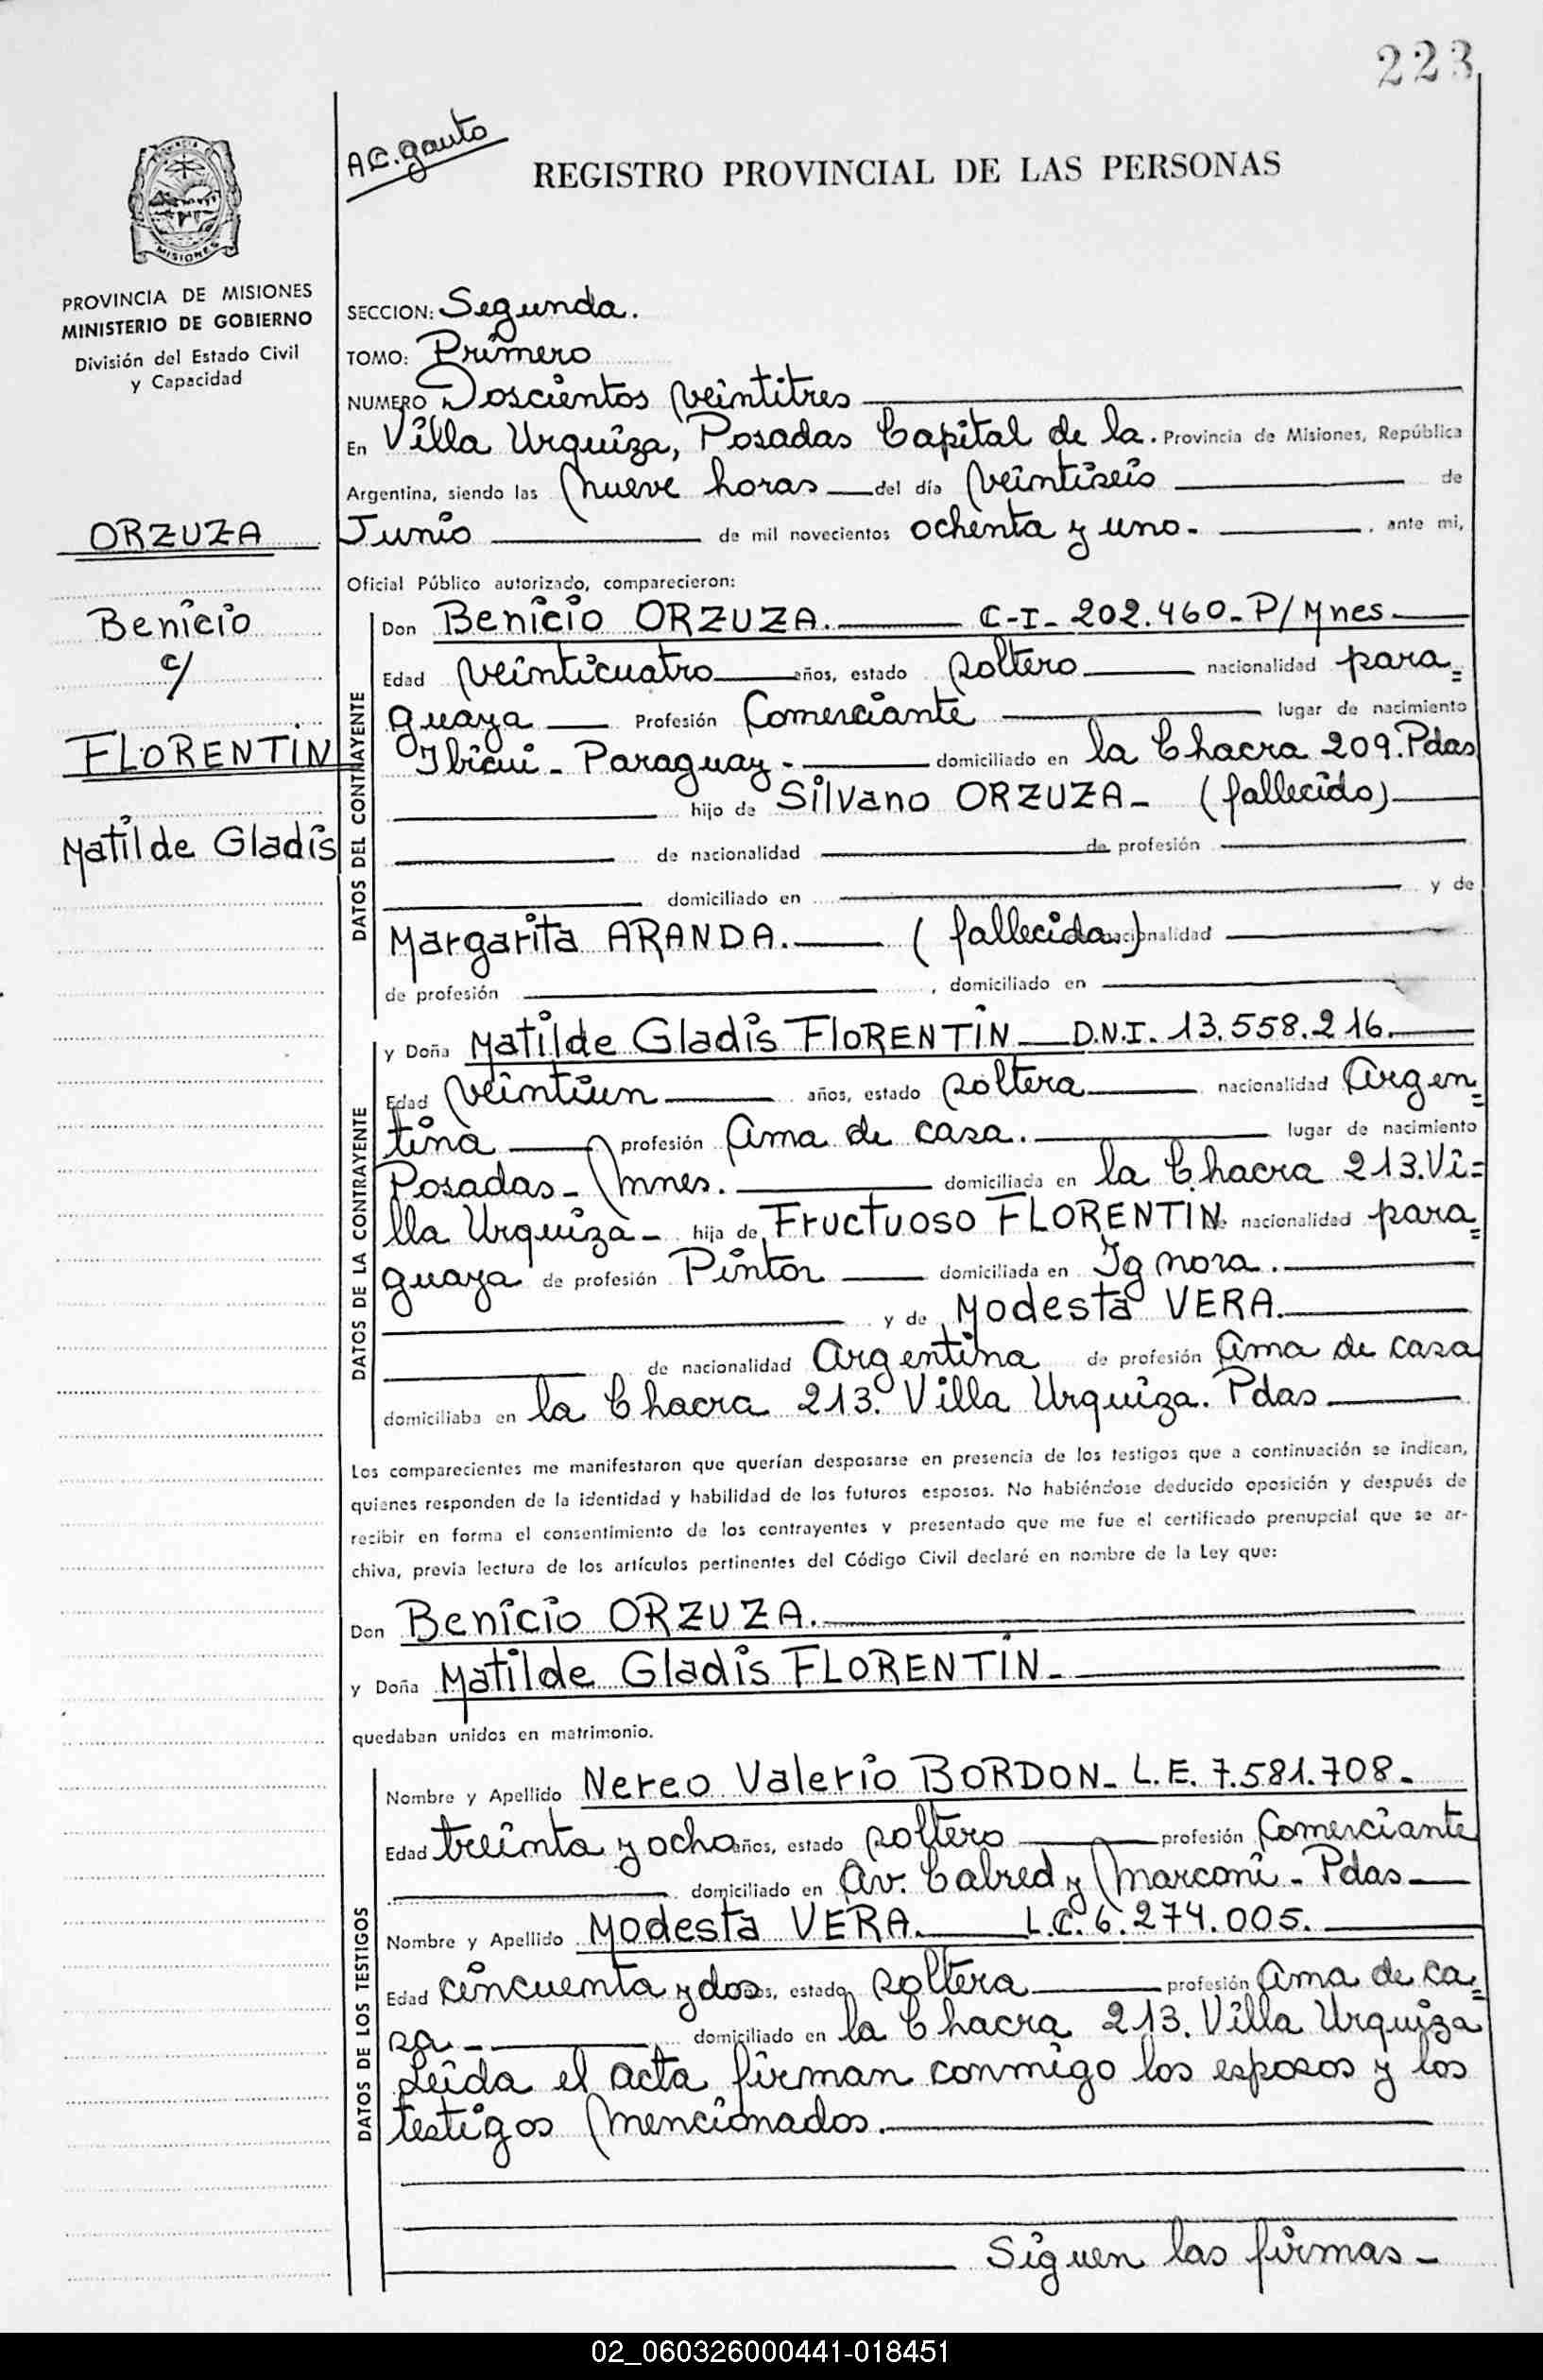 223
AC. Gauto
REGISTRO PROVINCIAL DE LAS PERSONAS
MISIONES
PROVINCIA DE MISIONES
MINISTERIO DE GOBIERNO
División del Estado Civil
y Capacidad
SECCION: Segunda.
TOMO: Primero
NUMERO Doscientos veintitres
En Villa Urquiza, Posadas Capital de la. Provincia de Misiones, República
Argentina, siendo las nueve horas del día veintiseis de
Junio de mil novecientos ochenta y uno. , ante mi,
Oficial Público autorizado, comparecieron:
ORZUZA
Benicio
c/
FLORENTIN
Matilde Gladis
DATOS DEL CONTRAYENTE
Don Benicio ORZUZA. C-I- 202.460- P/Mnes
Edad veinticuatro años, estado soltero nacionalidad para=
guaya Profesión Comerciante lugar de nacimiento
Ibicui - Paraguay - domiciliado en la Chacra 209. Pdas
hijo de Silvano ORZUZA - (fallecido)
de nacionalidad de profesión
domiciliado en y de
Margarita ARANDA. (fallecida) nacionalidad
de profesión , domiciliado en
DATOS DE LA CONTRAYENTE
y Doña Matilde Gladis FLORENTIN D.N.I. 13.558.216.
Edad veintiun años, estado soltera nacionalidad Argen=
tina profesión Ama de casa. lugar de nacimiento
Posadas - Mnes. domiciliada en la Chacra 213. Vi=
lla Urquiza - hija de Fructuoso FLORENTIN de nacionalidad para=
guaya de profesión Pintor domiciliada en Ignora.
y de Modesta VERA.
de nacionalidad Argentina de profesión Ama de casa
domiciliaba en la Chacra 213. Villa Urquiza. Pdas
Los comparecientes me manifestaron que querían desposarse en presencia de los testigos que a continuación se indican,
quienes responden de la identidad y habilidad de los futuros esposos. No habiéndose deducido oposición y después de
recibir en forma el consentimiento de los contrayentes y presentado que me fue el certificado prenupcial que se ar-
chiva, previa lectura de los artículos pertinentes del Código Civil declaré en nombre de la Ley que:
Don Benicio ORZUZA.
y Doña Matilde Gladis FLORENTIN -
quedaban unidos en matrimonio.
DATOS DE LOS TESTIGOS
Nombre y Apellido Nereo Valerio BORDON - L.E. 7.581.708 -
Edad treinta y ocho años, estado soltero profesión Comerciante
domiciliado en Av. Cabred y Marconi - Pdas
Nombre y Apellido Modesta VERA. L.C. 6.274.005.
Edad cincuenta y dos años, estado soltera profesión Ama de ca=
sa - domiciliado en la Chacra 213. Villa Urquiza
Leida el acta firman conmigo los esposos y los
testigos mencionados.
Siguen las firmas -
02_060326000441-018451